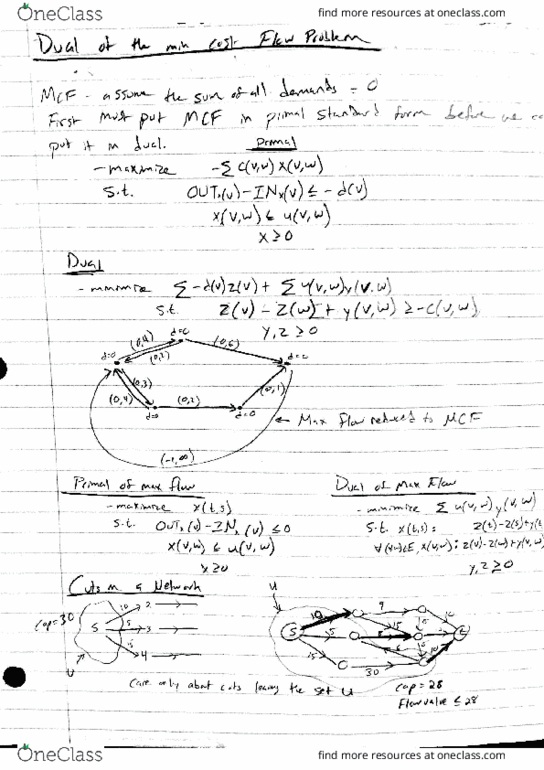 OneClass
find more resources at oneclass.com
Dual of the min cost Flow Problem
MCF - assume the sum of all demands = 0
First must put MCF in primal standard form before we
put it in dual.
Primal
- maximize -∑ c(v,w) x(v,w)
s.t. OUTₓ(v) - INₓ(v) ≤ -d(v)
x(v,w) ≤ u(v,w)
x ≥ 0
Dual
- minimize ∑ -d(v)z(v) + ∑ u(v,w)y(v,w)
s.t. z(v) - z(w) + y(v,w) ≥ -c(v,w)
y,z ≥ 0
d=0
(0,4)
(0,2)
(0,6)
d=0
d=0
(0,3)
(0,4)
(0,2)
(0,1)
d=0
d=0
(-1,∞)
← Max flow reduced to MCF
Primal of max flow
- maximize x(t,s)
s.t. OUTₓ(v) - INₓ(v) ≤ 0
x(v,w) ≤ u(v,w)
x ≥ 0
Dual of Max Flow
- minimize ∑ u(v,w) y(v,w)
s.t. x(t,s): z(t)-z(s)+y(t
∀(v,w)∈E, x(v,w): z(v)-z(w)+y(v,w
y,z ≥ 0
Cuts in a Network
cap=30
S
10
2
5
3
15
4
U
U
S
10
5
15
9
15
10
30
10
t
Care only about cuts leaving the set U
cap = 28
Flow value ≤ 28
OneClass
find more resources at oneclass.com